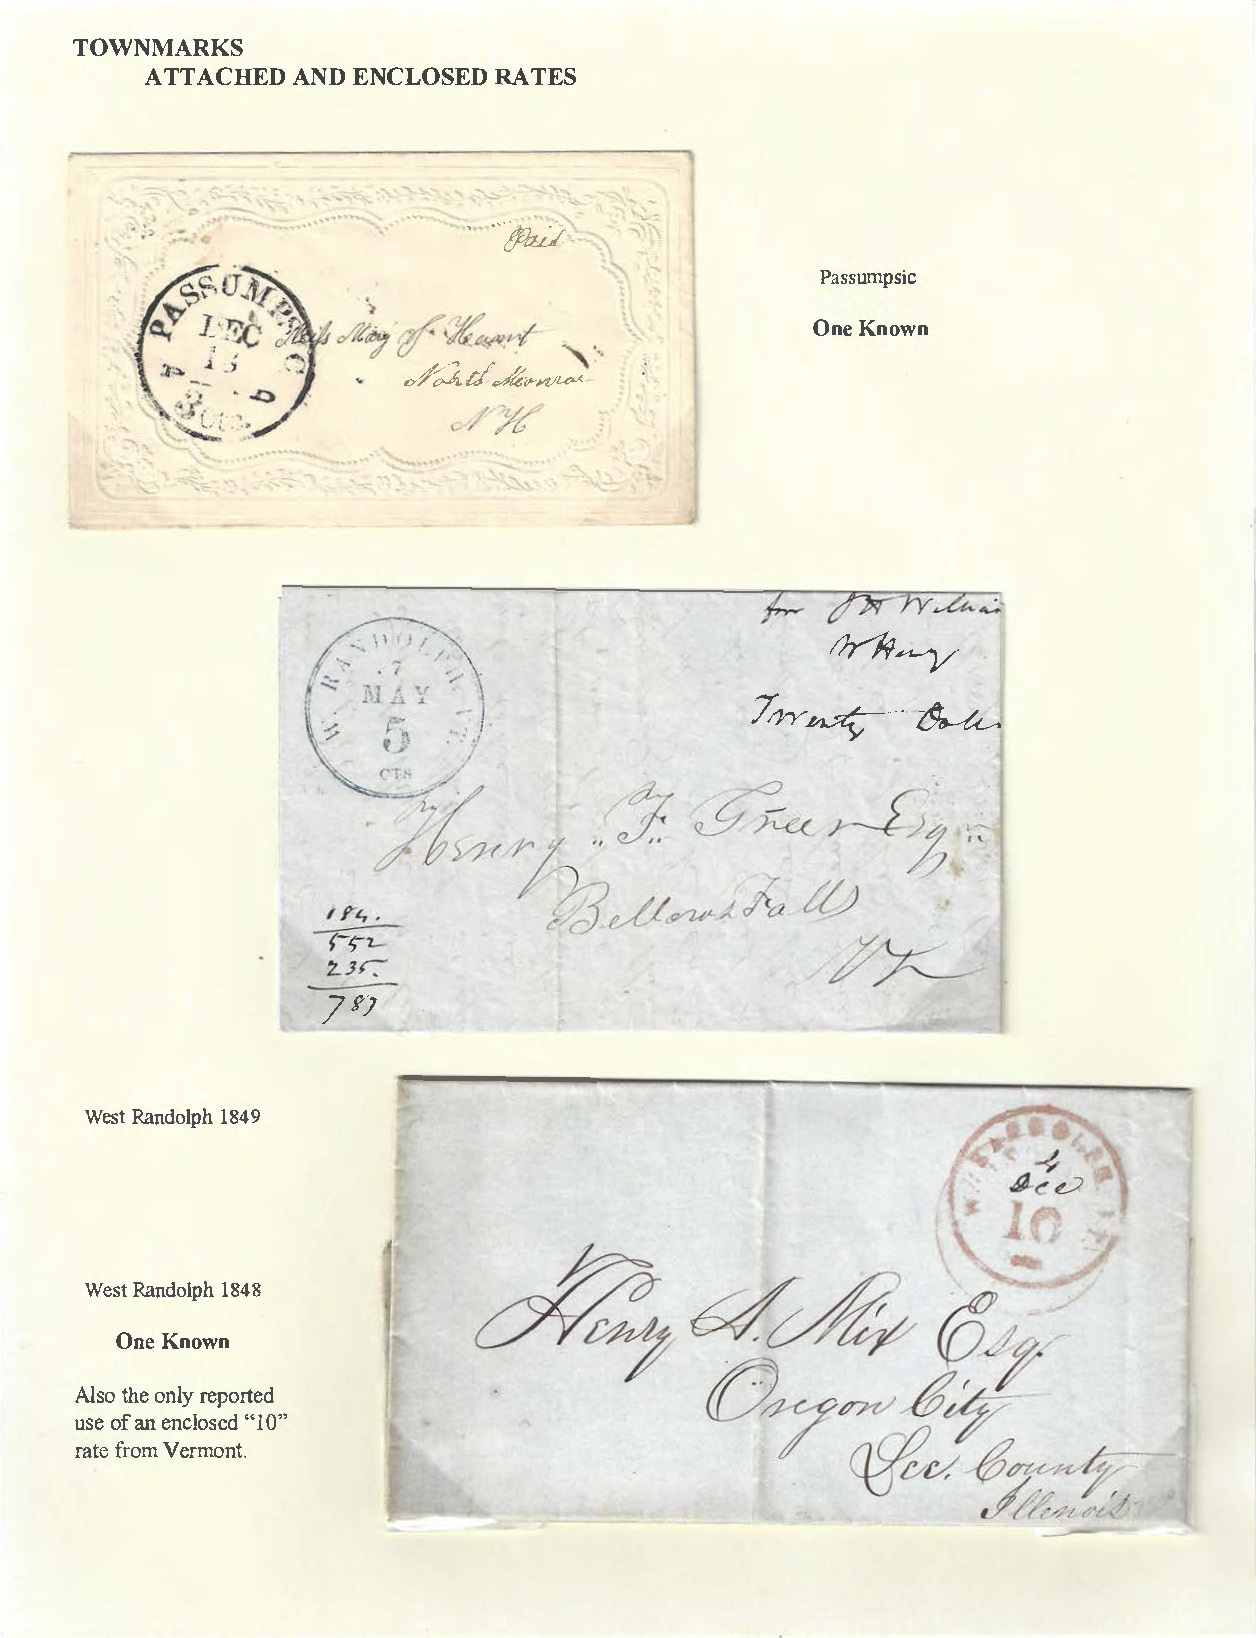 TOWNMARKS
ATTACHED AND ENCLOSED RATES
Paid
PASSUMPSIC
DEC
13
3 cts.
Miss Mary
North Monroe
N H
Passumpsic
One Known
W. RANDOLPH VT.
7
MAY
5
CTS
for J H
W Henry
Twenty
Henry F. Green Esq
Bellows Falls
Vt
184.
552
235.
787
West Randolph 1849
W. RANDOLPH VT.
4
Dec
10
Henry A. Mix Esq.
Oregon City
Lee. County
Illenois
West Randolph 1848
One Known
Also the only reported
use of an enclosed “10”
rate from Vermont.